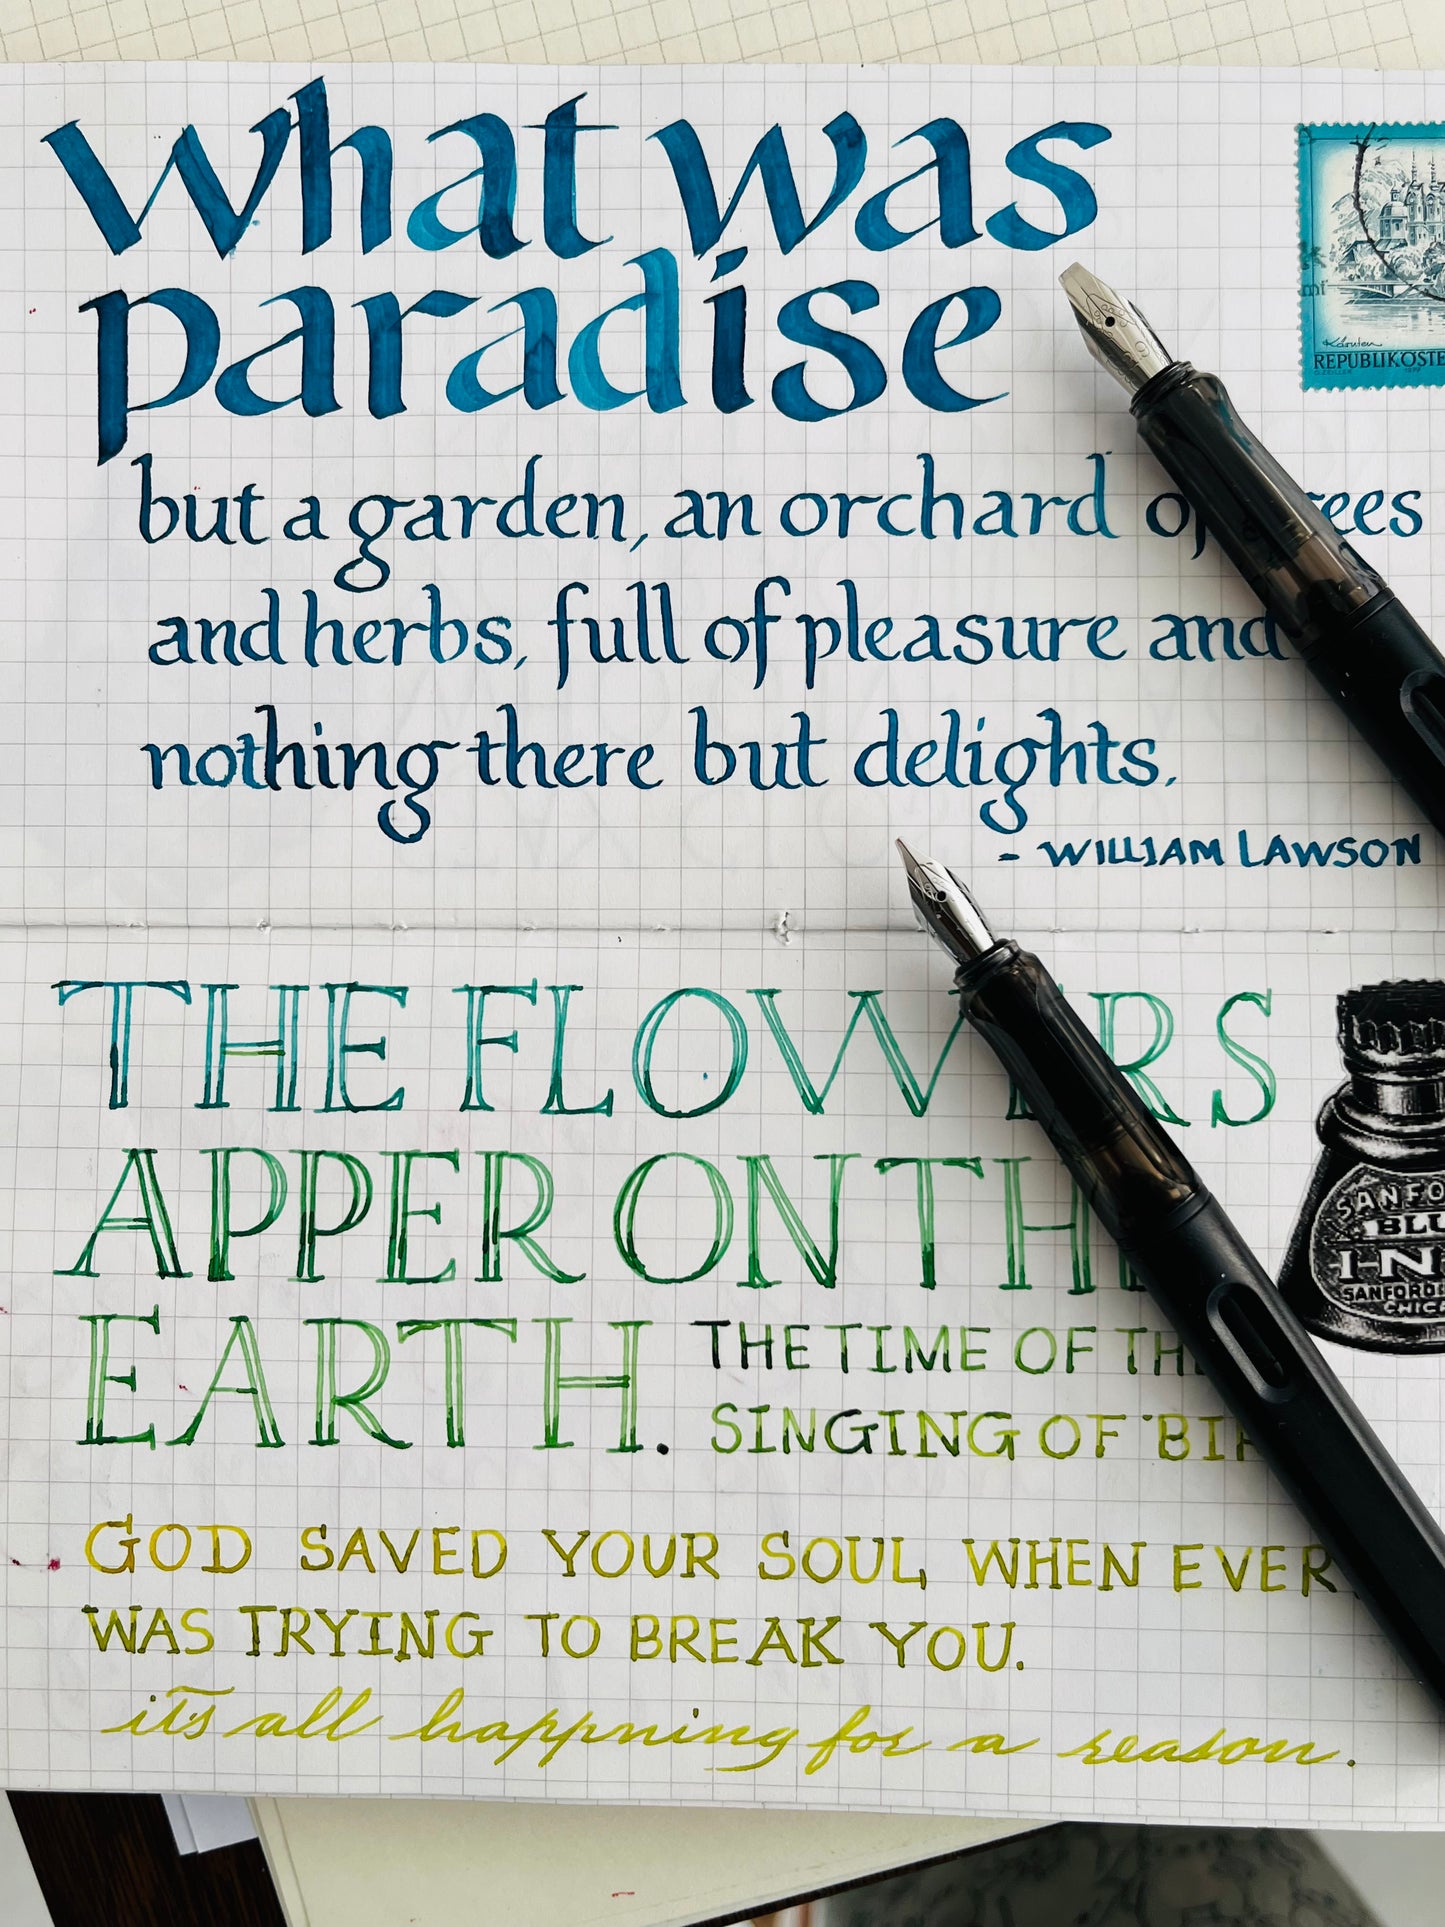 what was
paradise
but a garden, an orchard
and herbs, full of pleasure and
nothing there but delights.
- WILLIAM LAWSON
Kärnten
REPUBLIK
THE FLOWERS
APPER ON
EARTH.
THE TIME OF
SINGING OF
SANFO
BLU
IN
SANFORD
CHICA
GOD SAVED YOUR SOUL, WHEN EVER
WAS TRYING TO BREAK YOU.
it's all happning for a reason.